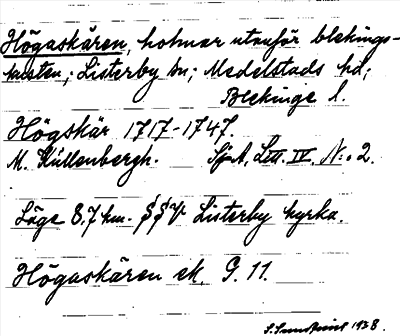 Högaskären, holmar utanför blekings-
kusten; Listerby sn; Medelstads hd;
Blekinge l.
Högskär 1717-1747.
M. Küllenbergh. SjA, Litt. IV. No. 2.
Läge 8,7 km. SSV Listerby kyrka.
Högaskären ek. G. 11.
1938.